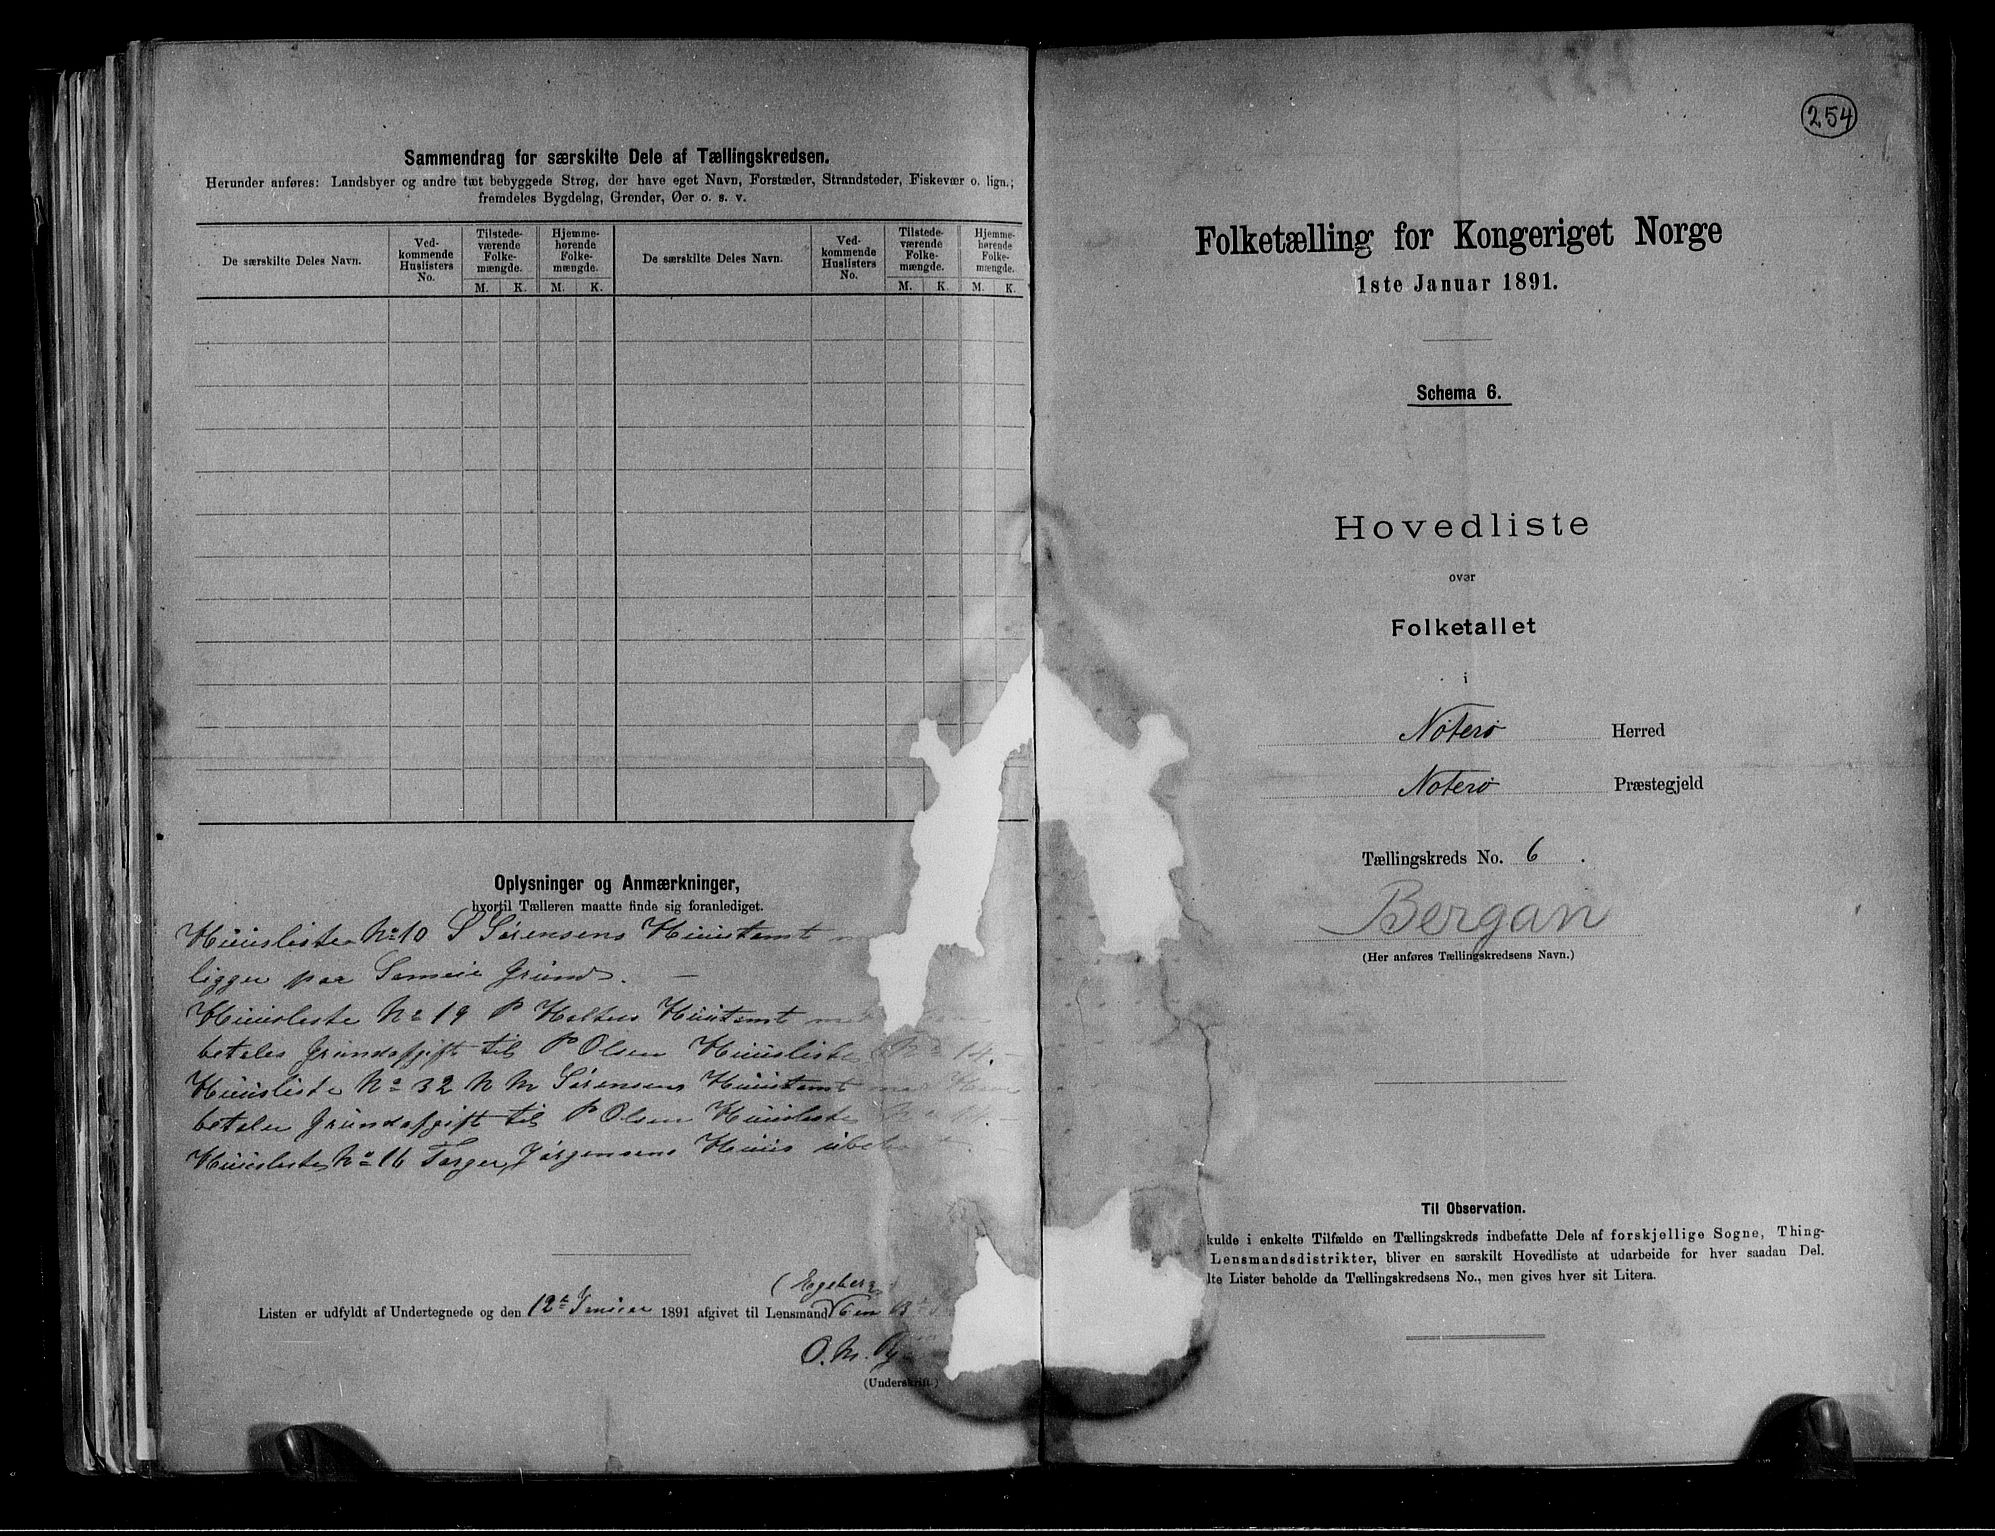 Sammendrag for særskilte Dele af Tællingskredsen.
Herunder anføres: Landsbyer og andre tæt bebyggede Strøg, der have eget Navn, Forstæder, Strandsteder, Fiskevær o. lign.;
fremdeles Bygdelag, Grender, Øer o. s. v.
De særskilte Deles Navn.
Ved-
kommende
Huslisters
No.
Tilstede-
værende
Folke-
mængde.
Hjemme-
hørende
Folke-
mængde.
De særskilte Deles Navn.
Ved-
kommende
Huslisters
No.
Tilstede-
værende
Folke-
mængde.
Hjemme-
hørende
Folke-
mængde.
M. K. M. K. M. K. M. K.
Oplysninger og Anmærkninger,
hvortil Tælleren maatte finde sig foranlediget.
Huusliste No 10 S Sørensens Huustomt
ligger paa Sameie Grund.
Huusliste No 19 P Holtes Huustomt
betales Grundafgift til P Olsen Huusliste No 14.
Huusliste No 32 N M Sørensens Huustomt
betaler Grundafgift til P Olsen Huusliste No
Huusliste No 16 Torger Jørgensens Huus
(Eggeberg
Listen er udfyldt af Undertegnede og den 12te Januar 1891 afgivet til Lensmand
O. M.
(Underskrift.)
254
Folketælling for Kongeriget Norge
1ste Januar 1891.
Schema 6.
Hovedliste
over
Folketallet
i
Nøterø Herred
Nøterø Præstegjeld
Tællingskreds No. 6.
Bergan
(Her anføres Tællingskredsens Navn.)
Til Observation.
kulde i enkelte Tilfælde en Tællingskreds indbefatte Dele af forskjellige Sogne, Thing-
Lensmandsdistrikter, bliver en særskilt Hovedliste at udarbeide for hver saadan Del.
lte Lister beholde da Tællingskredsens No., men gives hver sit Litera.